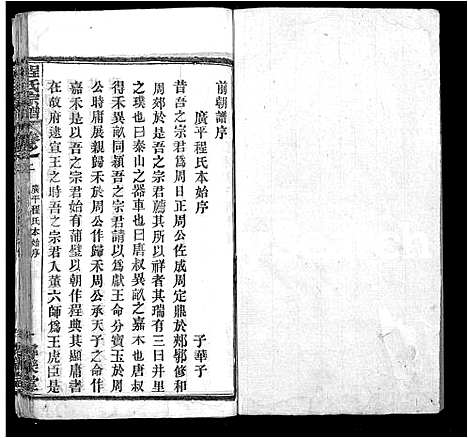 前朝譜序
廣平程氏本始序
子華子
昔吾之宗君爲周日正周公佐成周定鼎於郟鄏修和
周郊於是吾宗君薦其所以祥者其瑞有三曰井里
之璞也曰泰山之器車也曰唐叔異畝之嘉禾也唐叔
得禾異畝同穎吾之宗君請以獻王命分寶玉於周
公時庸展親歸禾於周公作歸禾周公承天子之命作
嘉禾是吾宗君始有蒲璧以朝作程典其顯庸者
在故府逮宣王之時吾之宗君入董六師爲王虎臣是
程氏宗譜
卷之一
廣平程氏本始序